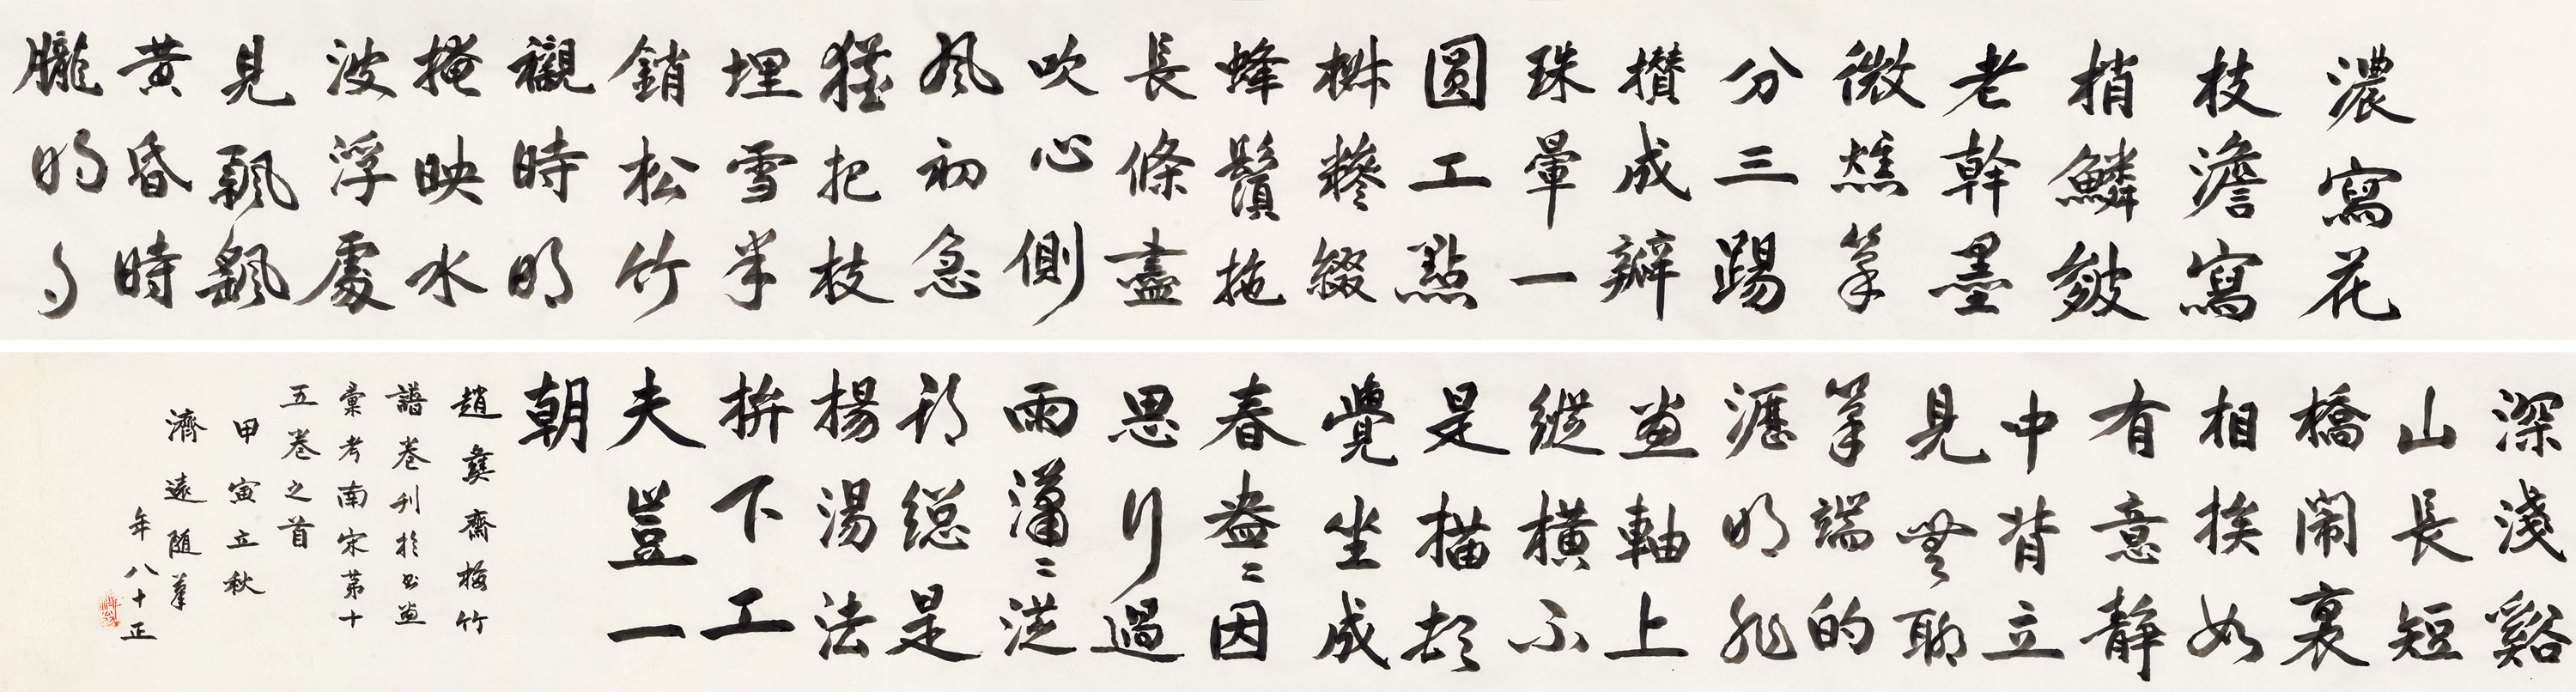 濃寫花
枝澹寫
梢鱗皴
老幹墨
微燋筆
分三踢
攢成瓣
珠暈一
圓工點
椒糝綴
蜂鬚拖
長條盡
吹心側
風初急
猶把枝
埋雪半
銷松竹
襯時明
掩映水
波浮處
見飄飄
黃昏時
朧明月
深淺谿
山長短
橋鬧裏
相挨如
有意靜
中背立
見無聊
筆端的
瀝明非
畫軸上
縱橫不
是描頓
覺坐成
春盎=因
思行過
雨瀟=從
總是
楊湯法
拚下工
夫豈一
朝
趙彝齋梅竹
譜卷刊於書畫
彙考南宋第十
五卷之首
甲寅立秋
濟遠隨筆
年八十正